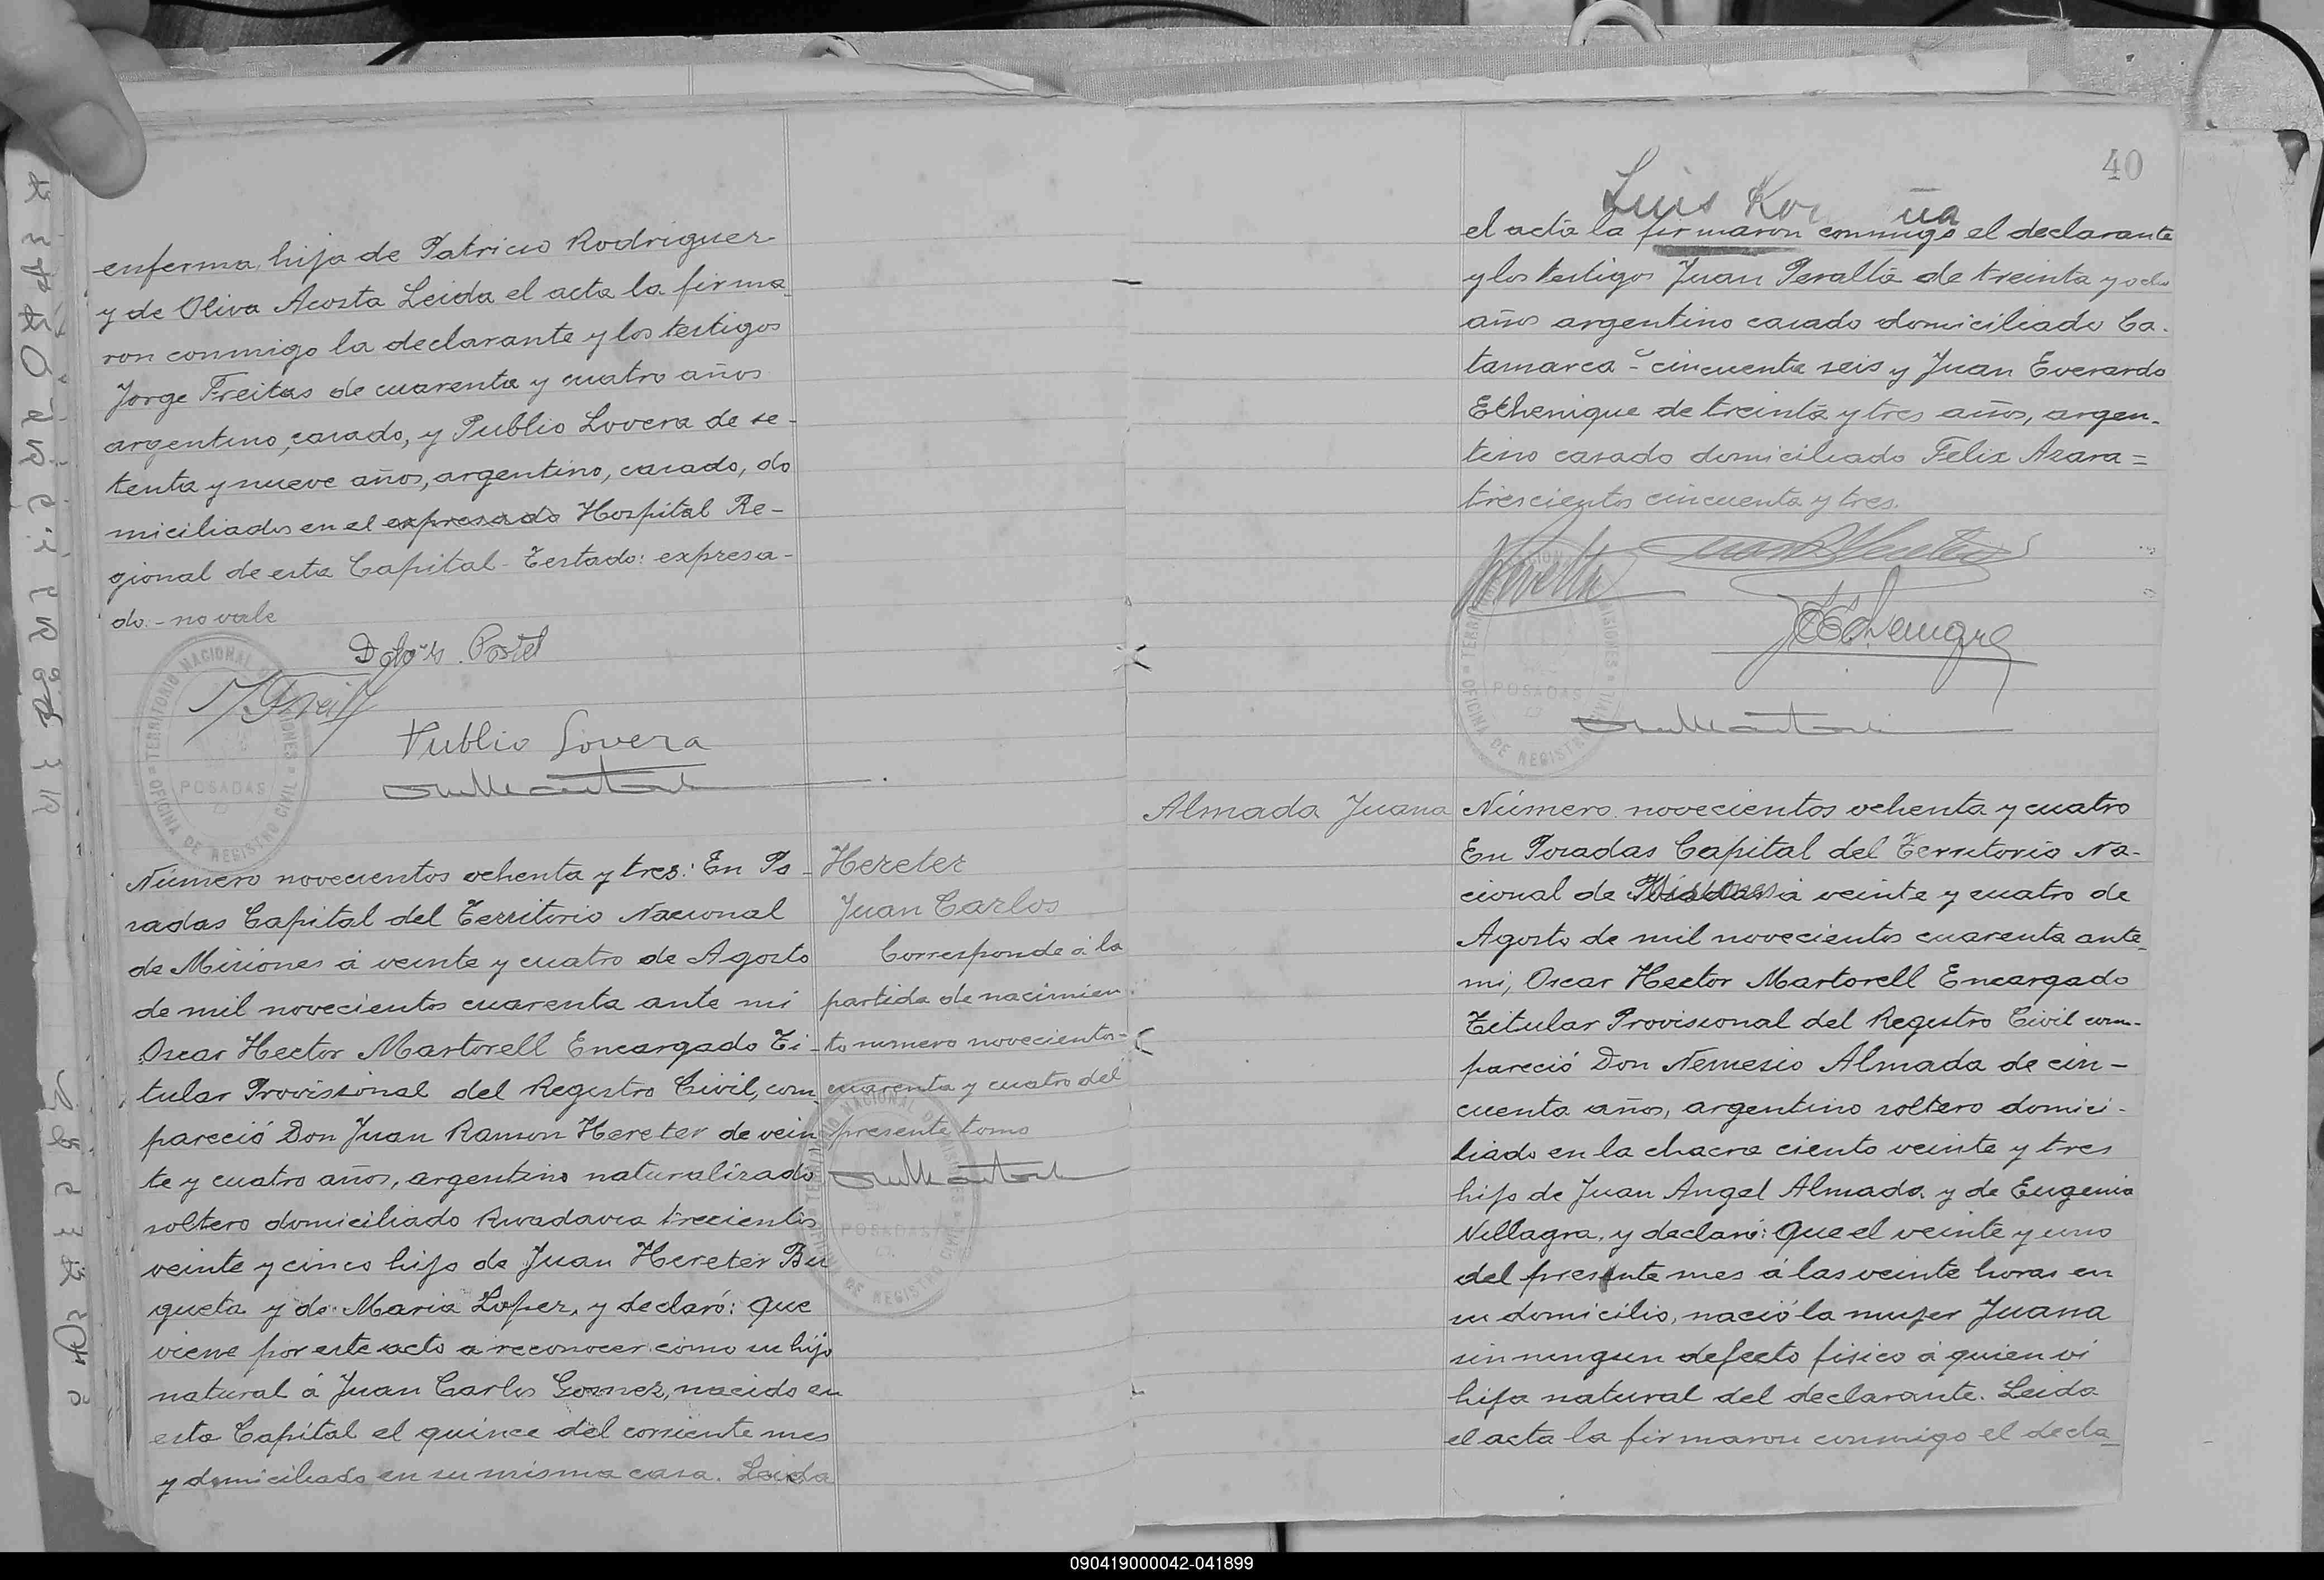 enferma, hija de Patricio Rodriguez
y de Oliva Acosta Leida el acta la firma-
ron conmigo la declarante y los testigos
Jorge Freitas de cuarenta y cuatro años
argentino, casado, y Publio Lovera de se-
tenta y nueve años, argentino, casado, do
miciliados en el expresado Hospital Re-
gional de esta Capital - Testado: expresa-
do. - no vale
Publio Lovera
TERRITORIO NACIONAL DE MISIONES
POSADAS
OFICINA DE REGISTRO CIVIL
Número novecientos ochenta y tres: En Po-
sadas Capital del Territorio Nacional
de Misiones á veinte y cuatro de Agosto
de mil novecientos cuarenta ante mi
Oscar Hector Martorell Encargado Ti-
tular Provisional del Registro Civil, com
pareció Don Juan Ramon Hereter de vein
te y cuatro años, argentino naturalizado
soltero domiciliado Rivadavia trecientos
veinte y cinco hijo de Juan Hereter Bu
queta y de Maria Lopez, y declaró: Que
viene por este acto a reconocer como su hijo
natural á Juan Carlos Gomez, nacido en
esta Capital el quince del corriente mes
y domiciliado en su misma casa. Leida
Hereter
Juan Carlos
Corresponde á la
partida de nacimien
to número novecientos-
cuarenta y cuatro del
presente tomo
POSADAS
40
Luis
el acta la firmaron conmigo el declarante
y los testigos Juan Peralta de treinta y ocho
años argentino casado domiciliado Ca-
tamarca - cincuenta seis y Juan Everardo
Ethenique de treinta y tres años, argen-
tino casado domiciliado Felix Azara =
trescientos cincuenta y tres.
POSADAS
OFICINA DE REGISTRO CIVIL
Almada Juana
Número novecientos ochenta y cuatro
En Posadas Capital del Territorio Na-
cional de Misiones á veinte y cuatro de
Agosto de mil novecientos cuarenta ante
mi, Oscar Hector Martorell Encargado
Titular Provisional del Registro Civil com-
pareció Don Nemesio Almada de cin-
cuenta años, argentino soltero domici-
liado en la chacra ciento veinte y tres
hijo de Juan Angel Almada y de Eugenia
Villagra, y declaró: Que el veinte y uno
del presente mes á las veinte horas en
su domicilio, nació la mujer Juana
sin ningun defecto fisico á quien vi
hija natural del declarante. Leida
el acta la firmaron conmigo el decla-
090419000042-041899